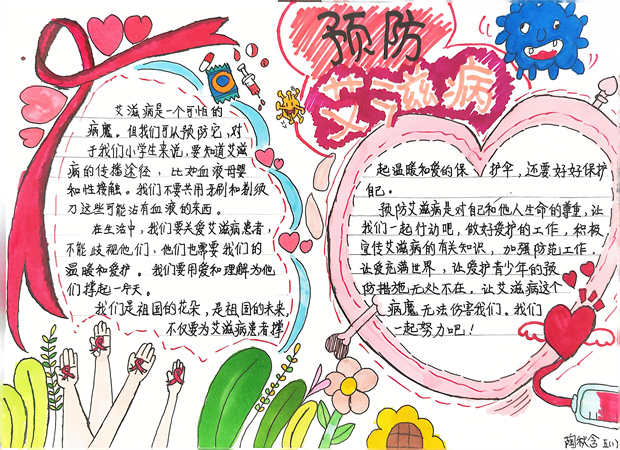 预防
艾滋病
艾滋病是一个可怕的
病魔。但我们可从预防它,对
于我们小学生来说,要知道艾滋
病的传播途径,比如血液母婴
和性接触。我们不要共用牙刷和剃须
刀这些可能沾有血液的东西。
在生活中,我们要关爱艾滋病患者,
不能歧视他们,他们也需要我们的
温暖和爱护。我们要用爱和理解为他
们撑起一片天。
我们是祖国的花朵,是祖国的未来,
不仅要为艾滋病患者撑
起温暖和爱的保护伞,还要好好保护
自己。
预防艾滋病是对自己和他人生命的尊重,让
我们一起行动吧,做好爱护的工作,积极
宣传艾滋病的有关知识,加强防范工作,
让爱充满世界,让爱护青少年的预
防措施无处不在。让艾滋病这个
病魔无法伤害我们。我们
一起努力吧!
陶秋含 五(1)